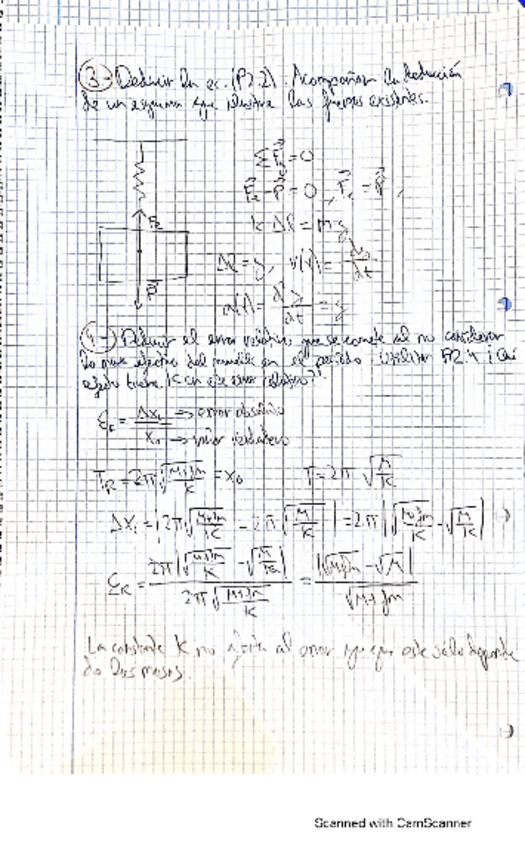 3- Deducir la ec. (P2.2). Acompañar la deducción
de un esquema que ilustre las fuerzas existentes.
ΣF = 0
Fe - P = 0, Fe = P
k Δl = m g
Δl = y, v(t) = dy/dt
Fe
P
4- Deducir el error relativo que se comete al no considerar
la masa efectiva del muelle en el periodo. Utilizar P2.4 ¿Qué
efecto tiene K en este error relativo?
εr = Δx₀/x₀ → error absoluto
→ valor verdadero
TR = 2π√((M+fm)/K) = x₀ T = 2π√(M/K)
Δx₀ = |2π√((M+fm)/K) - 2π√(M/K)| = 2π|√((M+fm)/K) - √(M/K)|
εR = 2π|√((M+fm)/K) - √(M/K)| / 2π√((M+fm)/K) = |√(M+fm) - √M| / √(M+fm)
La constante K no afecta al error ya que este sólo depende
de las masas.
Scanned with CamScanner